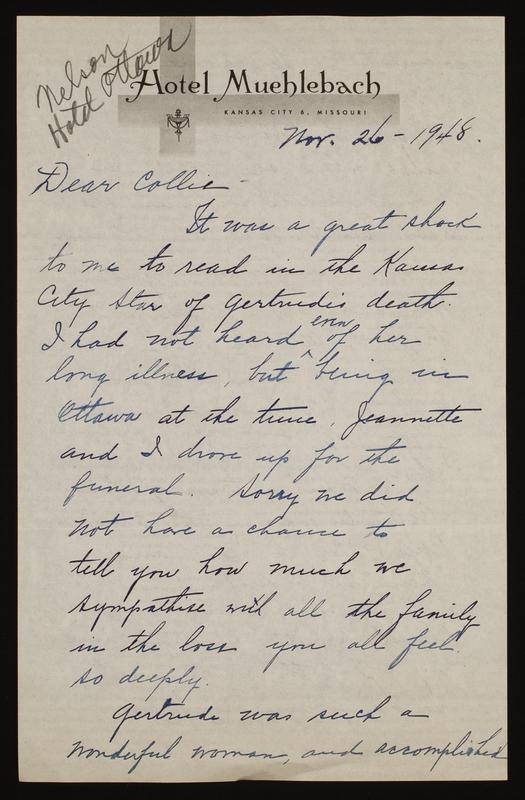 Nelson
Hotel Ottawa
Hotel Muehlebach
KANSAS CITY 6, MISSOURI
Nov. 26 - 1948.
Dear Collie -
It was a great shock
to me to read in the Kansas
City Star of Gertrude's death.
I had not heard even of her
long illness, but being in
Ottawa at the time, Jeannette
and I drove up for the
funeral. Sorry we did
not have a chance to
tell you how much we
sympathise with all the family
in the loss you all feel
so deeply.
Gertrude was such a
wonderful woman, and accomplished